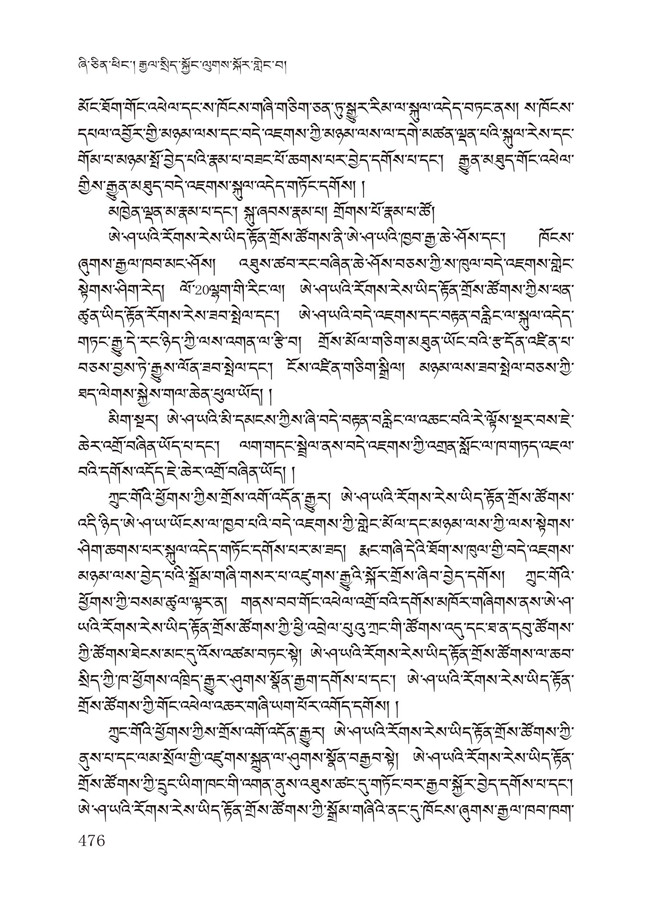 ཞི་ཅིན་ཕིང་། རྒྱལ་སྲིད་སྐྱོང་ལུགས་སྐོར་གླེང་བ།
མོང་ཐོག་གོང་འཕེལ་དང་ས་ཁོངས་གཞི་གཅིག་ཅན་ཏུ་སྒྱུར་རིམ་ལ་སྐུལ་འདེད་བཏང་ནས། ས་ཁོངས་
དཔལ་འབྱོར་གྱི་མཉམ་ལས་དང་བདེ་འཇགས་ཀྱི་མཉམ་ལས་ལ་དགེ་མཚན་ལྡན་པའི་སྐུལ་རེས་དང་
གོམ་པ་མཉམ་སྤོ་བྱེད་པའི་རྣམ་པ་བཟང་པོ་ཆགས་པར་བྱེད་དགོས་པ་དང་། རྒྱུན་མཐུད་གོང་འཕེལ་
གྱིས་རྒྱུན་མཐུད་བདེ་འཇགས་སྐུལ་འདེད་གཏོང་དགོས། །
མཁྱེན་ལྡན་མ་རྣམ་པ་དང་། སྐུ་ཞབས་རྣམ་པ། གྲོགས་པོ་རྣམ་པ་ཚོ།
ཨེ་ཤ་ཡའི་རོགས་རེས་ཡིད་རྟོན་གྲོས་ཚོགས་ནི་ཨེ་ཤ་ཡའི་ཁྱབ་རྒྱ་ཆེ་ཤོས་དང་། ཁོངས་
ཞུགས་རྒྱལ་ཁབ་མང་ཤོས། འཐུས་ཚབ་རང་བཞིན་ཆེ་ཤོས་བཅས་ཀྱི་ས་ཁུལ་བདེ་འཇགས་གླེང་
སྟེགས་ཤིག་རེད། ལོ་20ལྷག་གི་རིང་ལ། ཨེ་ཤ་ཡའི་རོགས་རེས་ཡིད་རྟོན་གྲོས་ཚོགས་ཀྱིས་ཕན་
ཚུན་ཡིད་རྟོན་རོགས་རེས་ཟབ་སྤེལ་དང་། ཨེ་ཤ་ཡའི་བདེ་འཇགས་དང་བརྟན་བརླིང་ལ་སྐུལ་འདེད་
གཏང་རྒྱུ་དེ་རང་ཉིད་ཀྱི་ལས་འགན་ལ་རྩི་བ། གྲོས་མོལ་གཅིག་མཐུན་ཡོང་བའི་རྩ་དོན་འཛིན་པ་
བཅས་བྱས་ཏེ་རྒྱུས་ལོན་ཟབ་སྤེལ་དང་། ངོས་འཛིན་གཅིག་སྒྲིལ། མཉམ་ལས་ཟབ་སྤེལ་བཅས་ཀྱི་
ཐད་ལེགས་སྐྱེས་གལ་ཆེན་ཕུལ་ཡོད། །
མིག་སྔར། ཨེ་ཤ་ཡའི་མི་དམངས་ཀྱིས་ཞི་བདེ་བརྟན་བརླིང་ལ་འཆང་བའི་རེ་ལྟོས་སྔར་བས་ཇེ་
ཆེར་འགྲོ་བཞིན་ཡོད་པ་དང་། ལག་གདང་སྦྲེལ་ནས་བདེ་འཇགས་ཀྱི་འགྲན་སློང་ལ་ཁ་གཏད་འཇལ་
བའི་དགོས་འདོད་ཇེ་ཆེར་འགྲོ་བཞིན་ཡོད། །
ཀྲུང་གོའི་ཕྱོགས་ཀྱིས་གྲོས་འགོ་འདོན་རྒྱུར། ཨེ་ཤ་ཡའི་རོགས་རེས་ཡིད་རྟོན་གྲོས་ཚོགས་
འདི་ཉིད་ཨེ་ཤ་ཡ་ཡོངས་ལ་ཁྱབ་པའི་བདེ་འཇགས་ཀྱི་གླེང་མོལ་དང་མཉམ་ལས་ཀྱི་ལས་སྟེགས་
ཤིག་ཆགས་པར་སྐུལ་འདེད་གཏོང་དགོས་པར་མ་ཟད། རྨང་གཞི་དེའི་ཐོག་ས་ཁུལ་གྱི་བདེ་འཇགས་
མཉམ་ལས་བྱེད་པའི་སྒྲོམ་གཞི་གསར་པ་འཛུགས་རྒྱུའི་སྐོར་གྲོས་ཞིབ་བྱེད་དགོས། ཀྲུང་གོའི་
ཕྱོགས་ཀྱི་བསམ་ཚུལ་ལྟར་ན། གནས་བབ་གོང་འཕེལ་འགྲོ་བའི་དགོས་མཁོར་གཞིགས་ནས་ཨེ་ཤ་
ཡའི་རོགས་རེས་ཡིད་རྟོན་གྲོས་ཚོགས་ཀྱི་ཕྱི་འབྲེལ་པུའུ་ཀྲང་གི་ཚོགས་འདུ་དང་ཐ་ན་དབུ་ཚོགས་
ཀྱི་ཚོགས་ཐེངས་མང་དུ་འོས་འཚམ་བཏང་སྟེ། ཨེ་ཤ་ཡའི་རོགས་རེས་ཡིད་རྟོན་གྲོས་ཚོགས་ལ་ཆབ་
སྲིད་ཀྱི་ཁ་ཕྱོགས་འཁྲིད་རྒྱུར་ཤུགས་སྣོན་རྒྱག་དགོས་པ་དང་། ཨེ་ཤ་ཡའི་རོགས་རེས་ཡིད་རྟོན་
གྲོས་ཚོགས་ཀྱི་གོང་འཕེལ་འཆར་གཞི་ཡག་པོར་འགོད་དགོས། །
ཀྲུང་གོའི་ཕྱོགས་ཀྱིས་གྲོས་འགོ་འདོན་རྒྱུར། ཨེ་ཤ་ཡའི་རོགས་རེས་ཡིད་རྟོན་གྲོས་ཚོགས་ཀྱི་
ནུས་པ་དང་ལམ་སྲོལ་གྱི་འཛུགས་སྐྲུན་ལ་ཤུགས་སྣོན་བརྒྱབ་སྟེ། ཨེ་ཤ་ཡའི་རོགས་རེས་ཡིད་རྟོན་
གྲོས་ཚོགས་ཀྱི་དྲུང་ཡིག་ཁང་གི་འགན་ནུས་འཐུས་ཚང་དུ་གཏོང་བར་རྒྱབ་སྐྱོར་བྱེད་དགོས་པ་དང་།
ཨེ་ཤ་ཡའི་རོགས་རེས་ཡིད་རྟོན་གྲོས་ཚོགས་ཀྱི་སྒྲོམ་གཞིའི་ནང་དུ་ཁོངས་ཞུགས་རྒྱལ་ཁབ་ཁག་
476